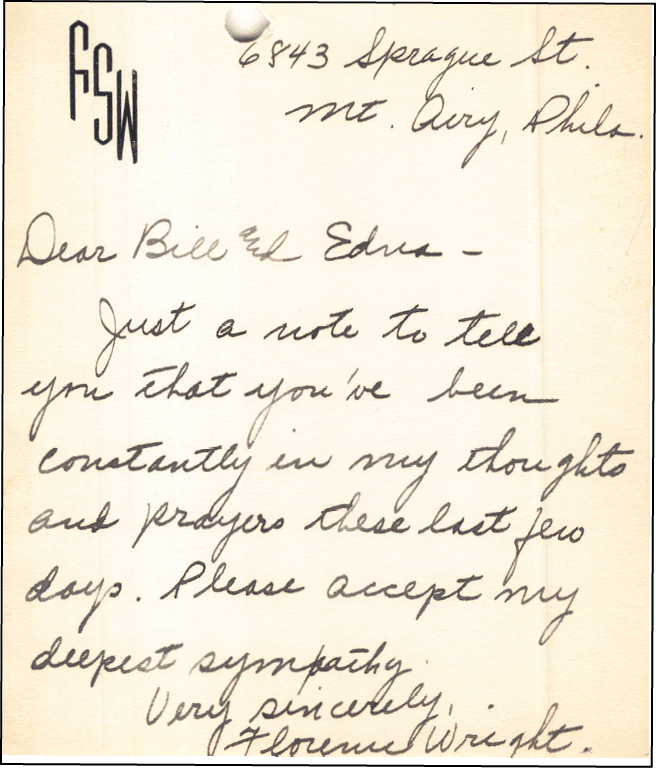 FSW
6843 Sprague St.
Mt. Airy, Phila.
Dear Bill and Edna –
Just a note to tell
you that you've been
constantly in my thoughts
and prayers these last few
days. Please accept my
deepest sympathy.
Very sincerely,
Florence Wright.